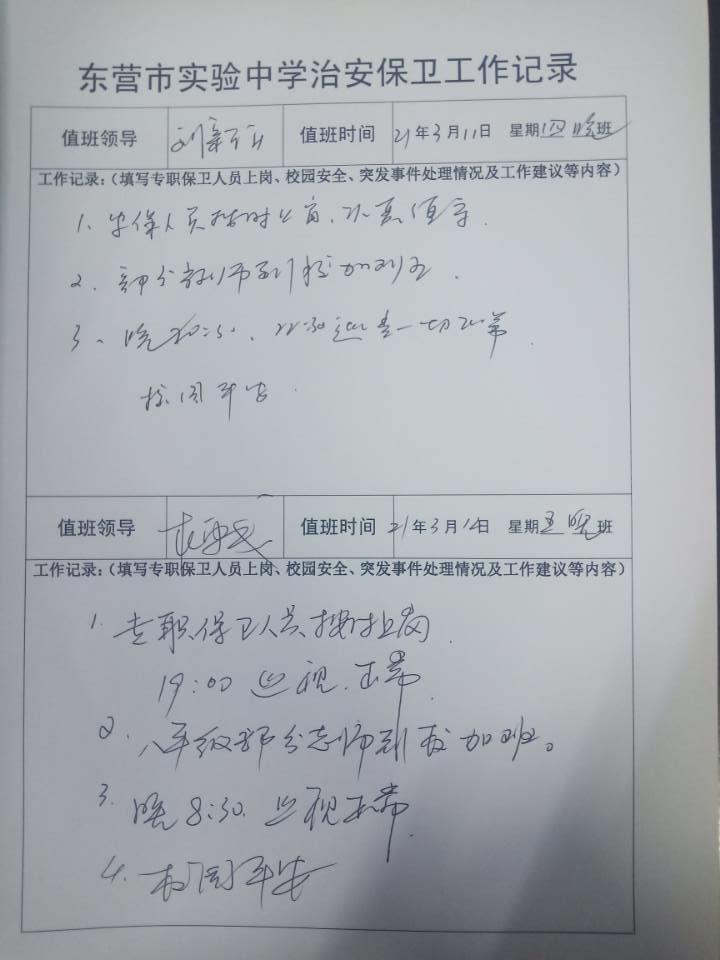 东营市实验中学治安保卫工作记录
值班领导 值班时间 21年3月11日 星期四晚班
工作记录：（填写专职保卫人员上岗、校园安全、突发事件处理情况及工作建议等内容）
1、安保人员按时上岗，认真值守.
2、部分教师到校加班.
3、晚20:30、22:30巡查一切正常.
校园平安.
值班领导 值班时间 21年3月12日 星期五晚班
工作记录：（填写专职保卫人员上岗、校园安全、突发事件处理情况及工作建议等内容）
1. 专职保卫人员按时上岗.
19:00 巡视.正常.
2. 八年级部分老师到校加班。
3. 晚8:30.巡视正常.
4. 校园平安